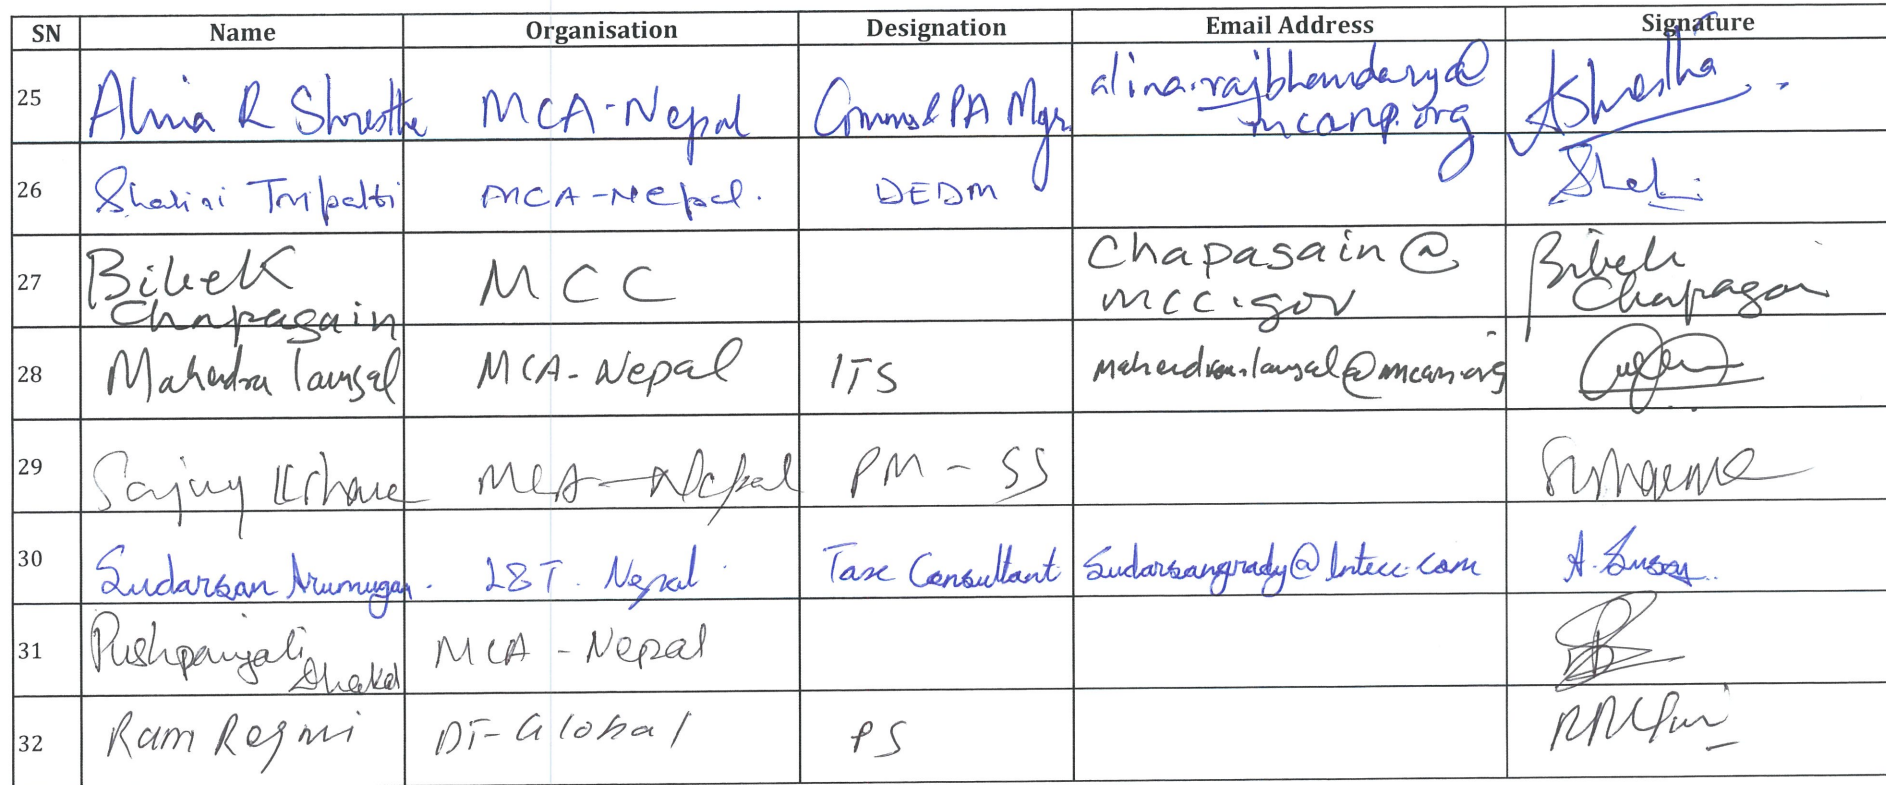 SN Name Organisation Designation Email Address Signature
25 Alina R Shrestha MCA-Nepal Comms & PA Mgr. alina.rajbhandary@
mcanp.org AShrestha
26 Shalini Tripathi MCA-Nepal. DEDM
27 Bibek
Chapagain MCC Chapagain@
mcc.gov Bibek
Chapagain
28 Mahendra Lamsal MCA-Nepal ITS
29 Sanjay MCA-Nepal PM - SS
30 Sudarsan Arumugam. L&T. Nepal Tax Consultant Sudarsangrady@lntecc.com
31 Pushpanjali
Dhakal MCA-Nepal
32 Ram Regmi DT-Global PS